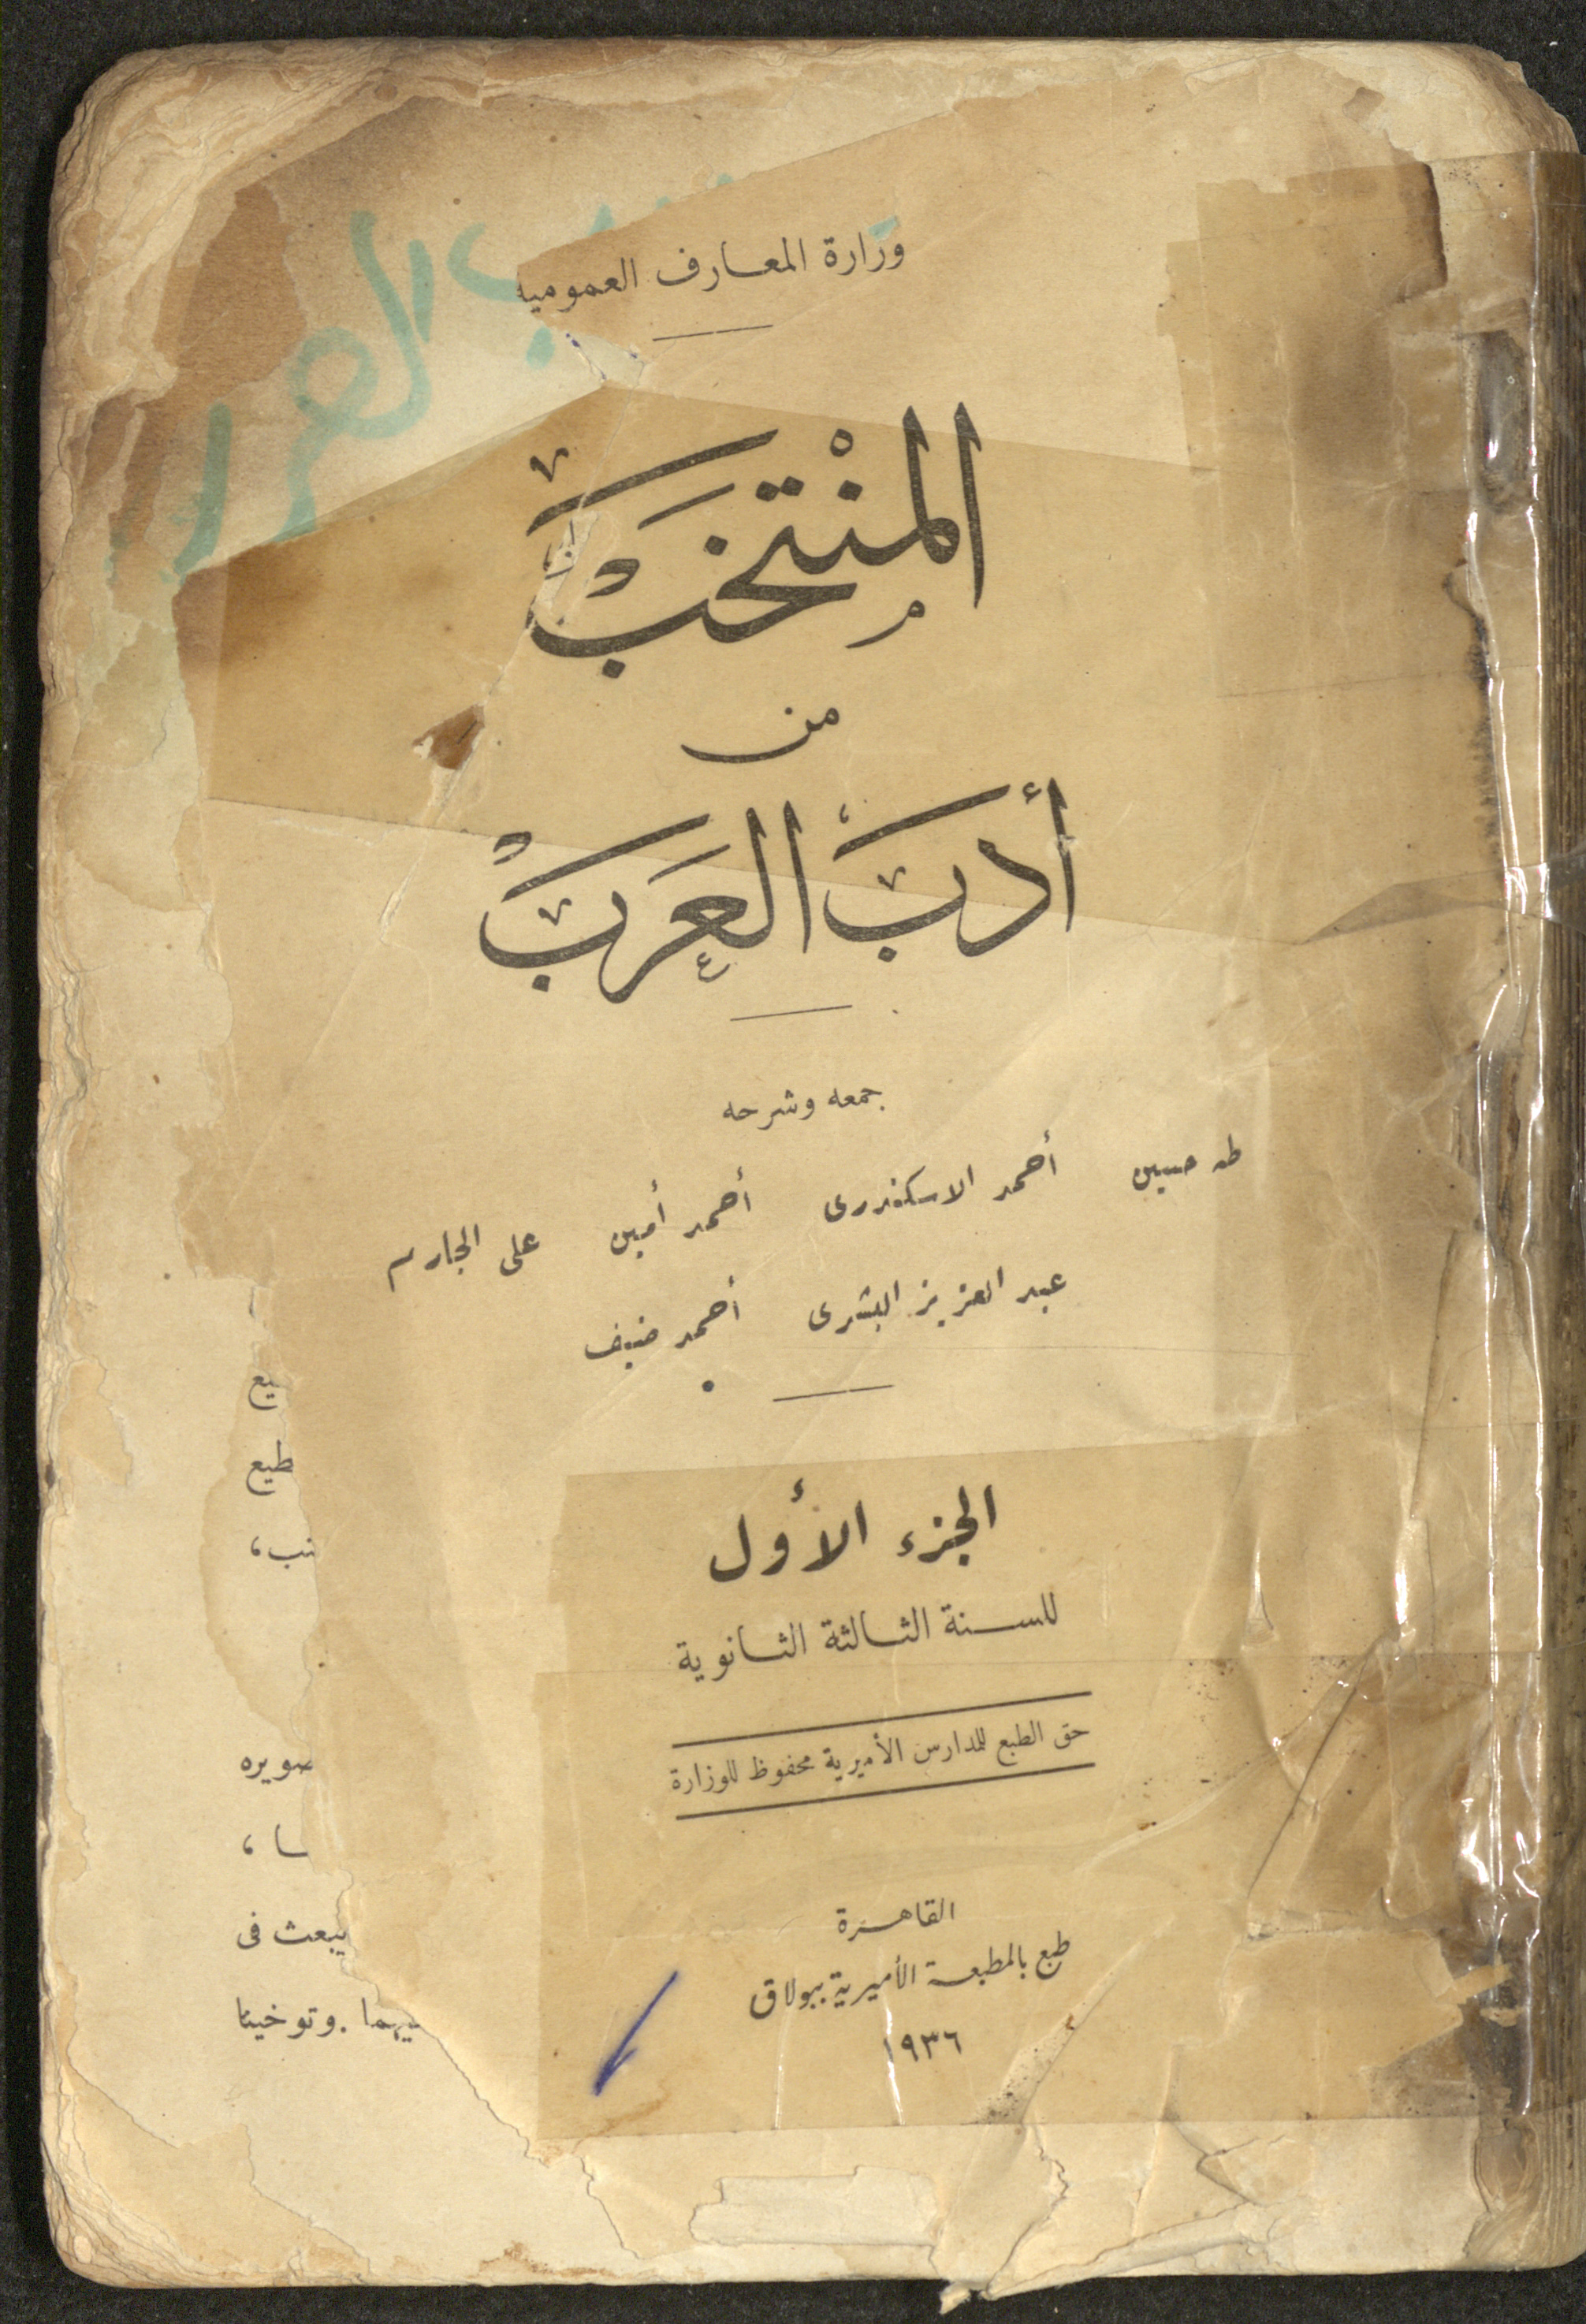 وزارة المعارف العمومية
المنْتخَبْ
من
أدبَ العَرَبْ
جمعه وشرحه
طه حسين أحمد الاسكندرى أحمد أمين على الجارم
عبد العزيز البشرى أحمد ضيف
الجزء الأول
للسنة الثالثة الثانوية
حق الطبع للمدارس الأميرية محفوظ للوزارة
القاهرة
طبع بالمطبعة الأميرية ببولاق
١٩٣٦
يبعث فى
وتوخينا